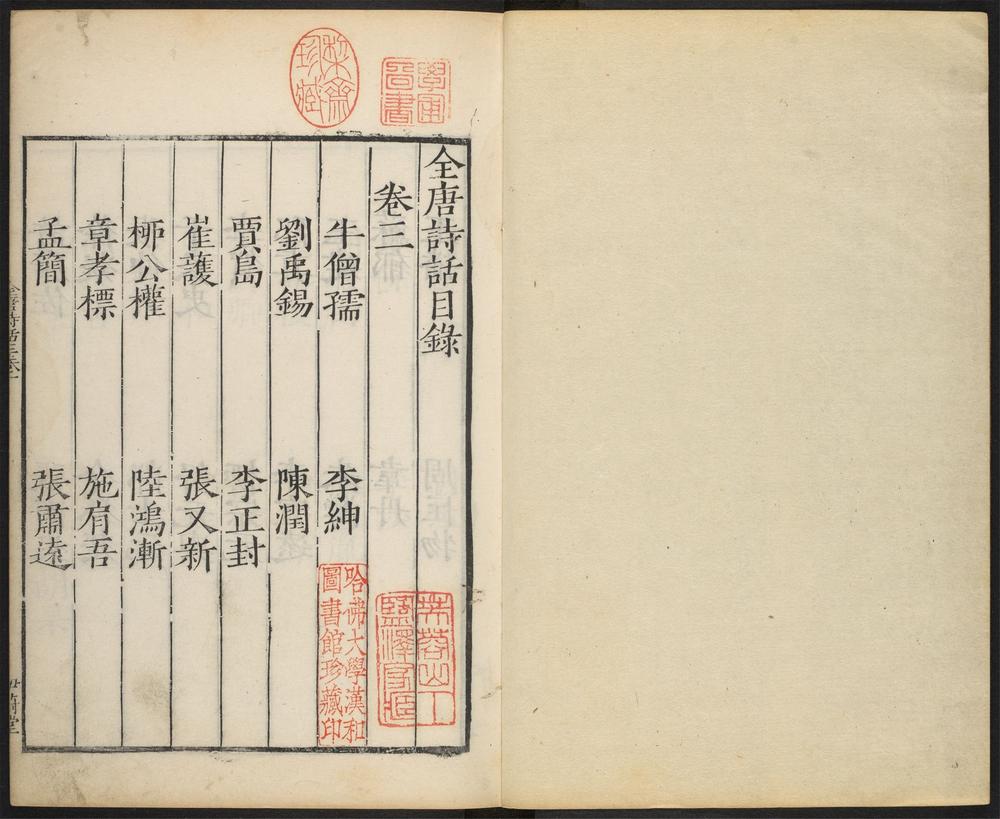 全唐詩話目錄
卷三
牛僧孺
李紳
劉禹錫
陳潤
賈島
李正封
崔護
張又新
柳公權
陸鴻漸
章孝標
施肩吾
孟簡
張蕭遠
珍藏
哈佛大學漢和
圖書館珍藏印